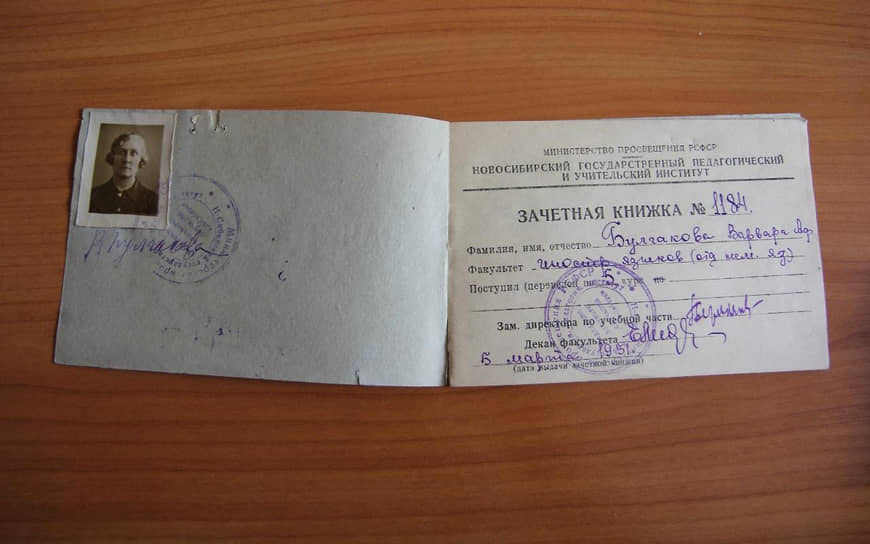 В. Булгакова
МИНИСТЕРСТВО ПРОСВЕЩЕНИЯ РСФСР
НОВОСИБИРСКИЙ ГОСУДАРСТВЕННЫЙ ПЕДАГОГИЧЕСКИЙ
И УЧИТЕЛЬСКИЙ ИНСТИТУТ
ЗАЧЕТНАЯ КНИЖКА № 1184.
Фамилия, имя, отчество Булгакова Варвара
Факультет иностр языков (отд нем. яз)
Поступил (переведен) на 5 курс
Зам. директора по учебной части
Декан факультета
5 марта 1951.
(дата выдачи зачетной книжки)